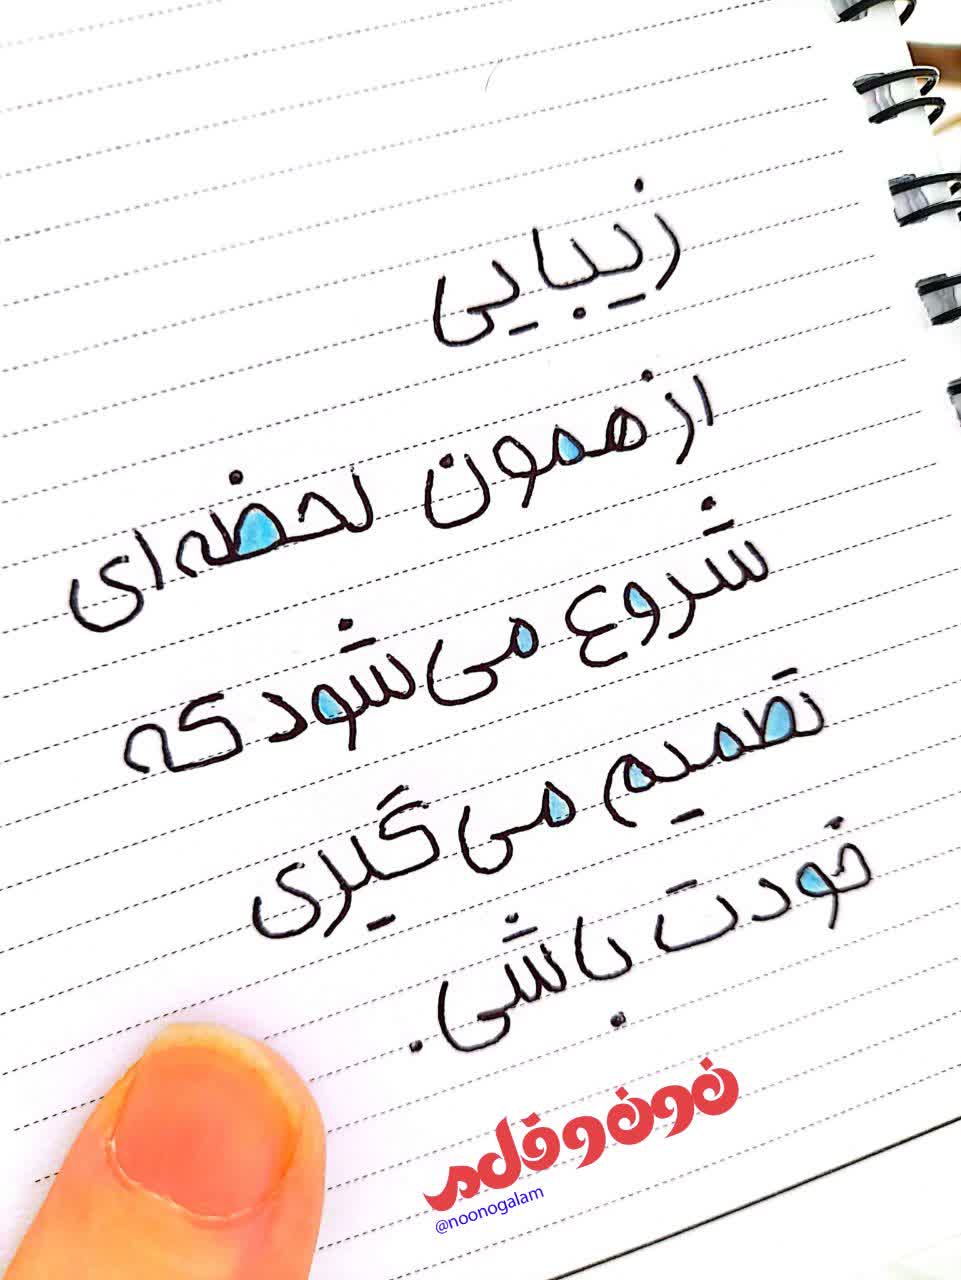 زیبایی
از همون لحظه‌ای
شروع می‌شود که
تصمیم می‌گیری
خودت باشی.
نون و قلم
@noonogalam